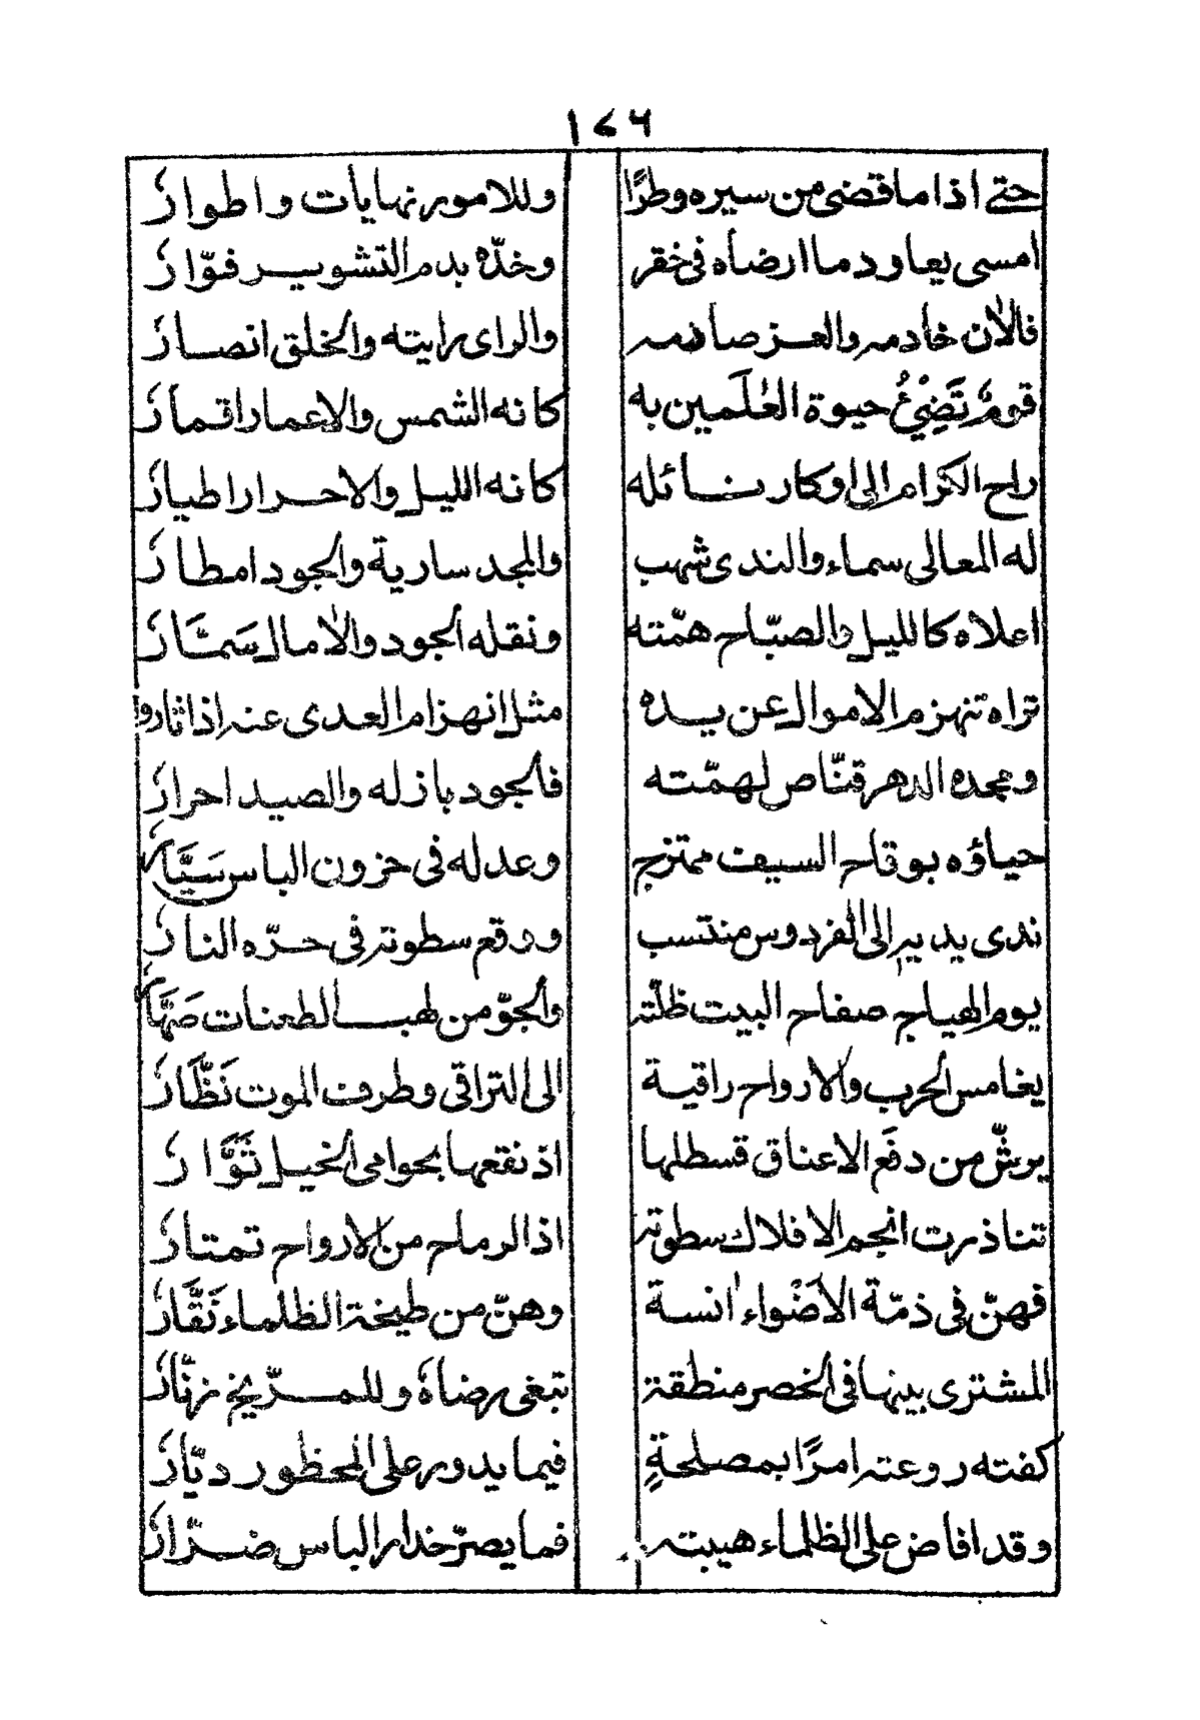 ١٧٦
حتى اذا ما قضى من سيره وطرًا وللامور نهايات واطوارٗ
امسى يعاود ما ارضاه فى خقر وخدّه بدم التشويــر فوّارٗ
فالاٰن خادمه والعــز صادمه والراى رايته والخلق انصــارٗ
قومٌ تَضِيْئُ حيوة العٰلَمين به كانه الشمس والاعمار اقــمارٗ
راح الكرام الى اوكار نــائله كانه الليل والاحــرار اطيارٗ
له المعالى سماء والندى شهب والمجد سارية والجود امطارٗ
اعلاه كالليل والصبّاح همّته ونقله الجود والاٰمال سَمّــَارٗ
تراه تنهزم الاموال عن يــده مثل انهزام العدى عنه اذا ثاروا
ومجده الدهر قنّاص لهمّته فالجود بازله والصيد احرارٗ
حياؤه بوقاح السيف ممتزج وعدله فى حزون الباس سَيَّارٗ
ندى يديه الى الفردوس منتسب ووقع سطوته فى حــرّه النارٗ
يوم الهياج صفاح البيت ظلّته والجوّ من لهب الطعنات صَهَّارٗ
يغامس الحرب والارواح راقية الى التراقى وطرف الموت نَظَّارٗ
يرشّ من دفَع الاعناق قسطلها اذ نقعها بحوامى الخيل ثَوَّارٗ
تناذرت انجم الافلاك سطوته اذ الرماح من الارواح تمتارٗ
فهنّ فى ذمّة الاَضْواء انسة وهنّ من طيخة الظلماء نَقَّارٗ
المشترى بينها فى الخصر منطقة تبغى رضاهٗ وللمــرّيخ زنّارٗ
كفته روعته امرًا بمصلحةٍ فيما يدور على المحظور ديّارٗ
وقد افاض على الظلماء هيبته فما يصرّ خدار الباس ضــرّارٗ